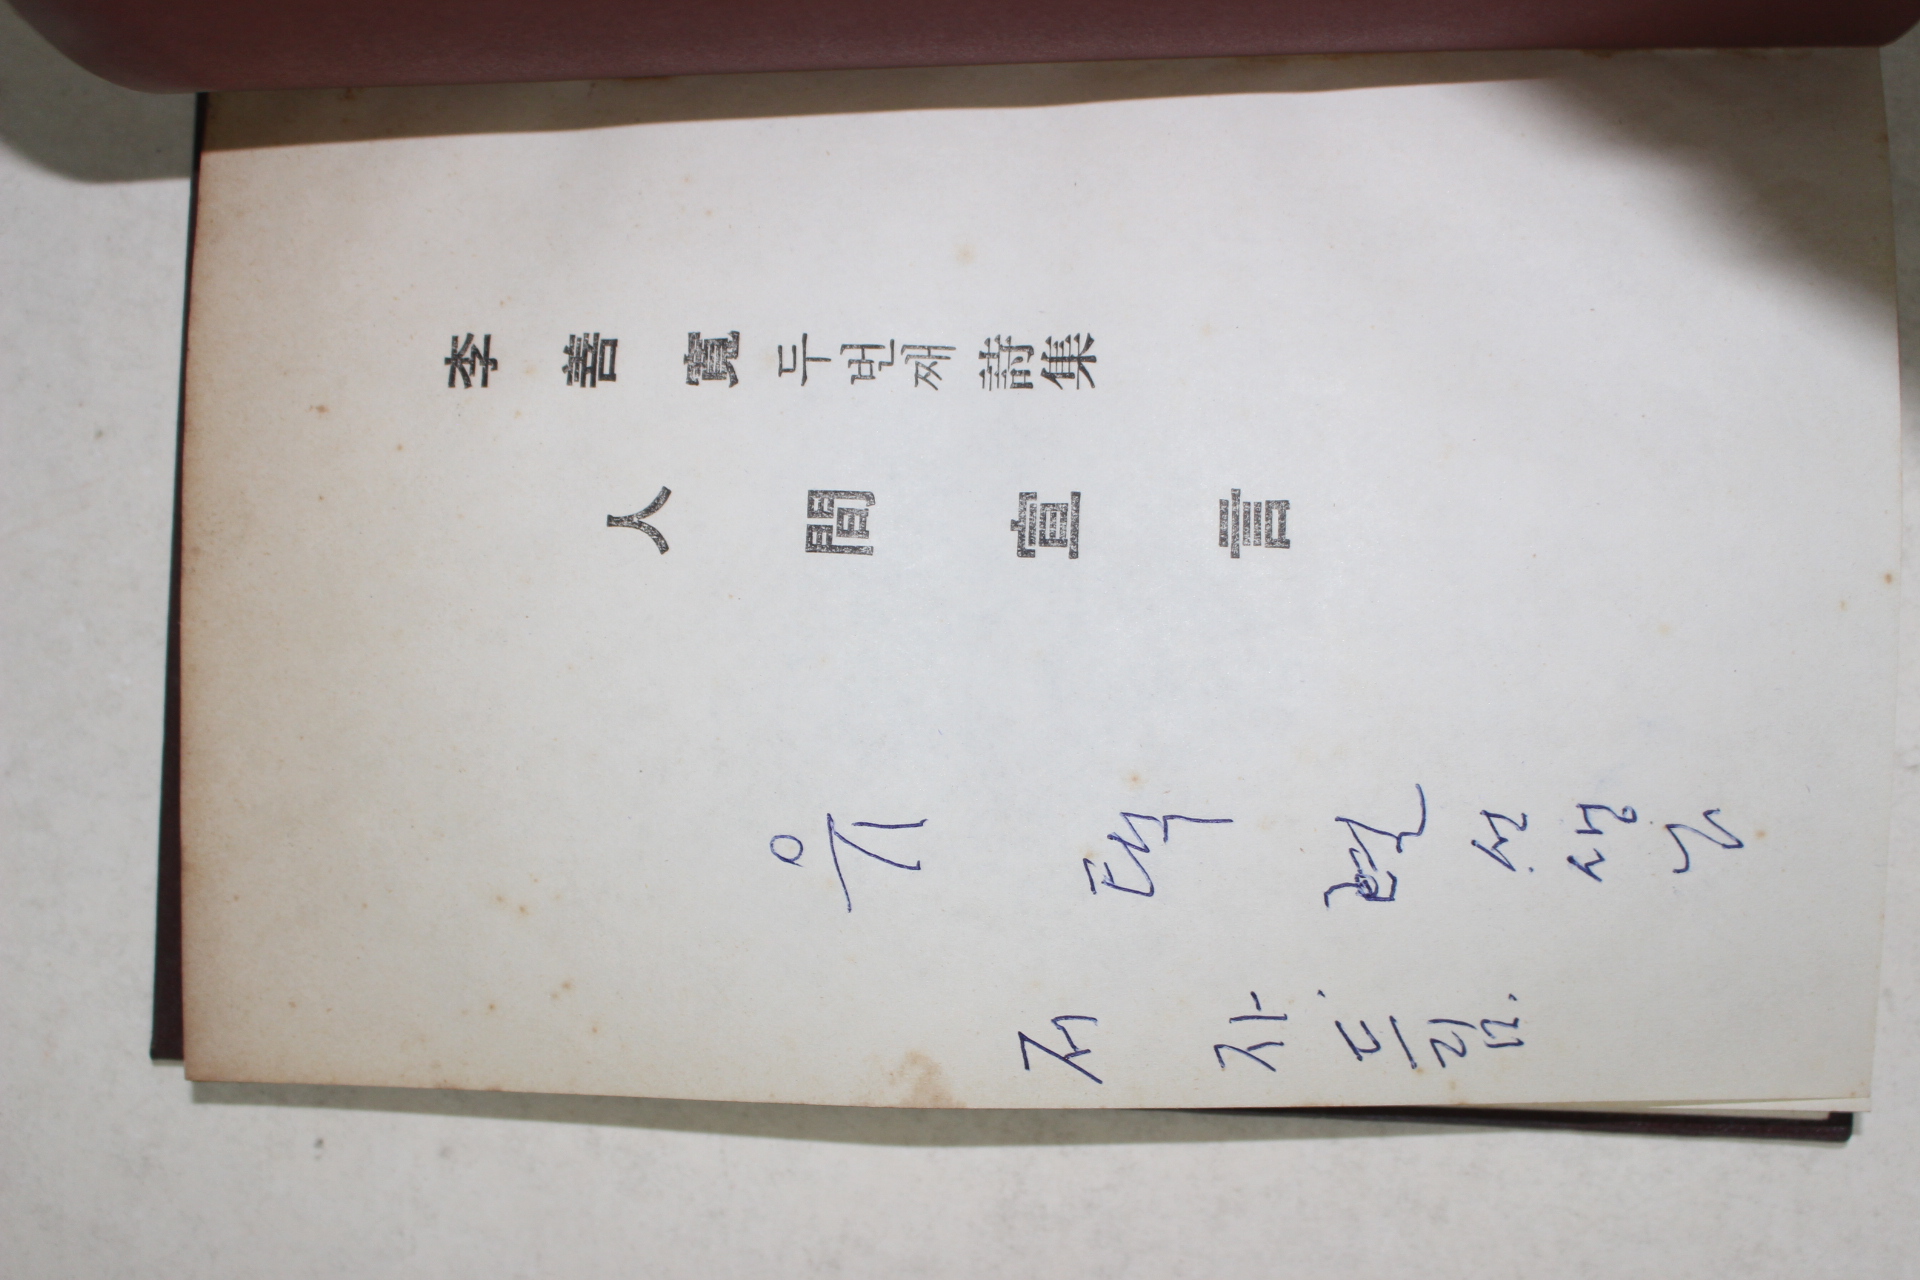 李善寬 두번째 詩集
人間宣言
유택렬 선생님
저자 드림.